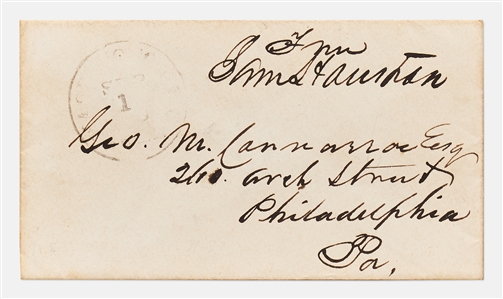 Free
Sam Houston
Geo. M. Connarroe Esq
260. Arch Street
Philadelphia
Pa.
1